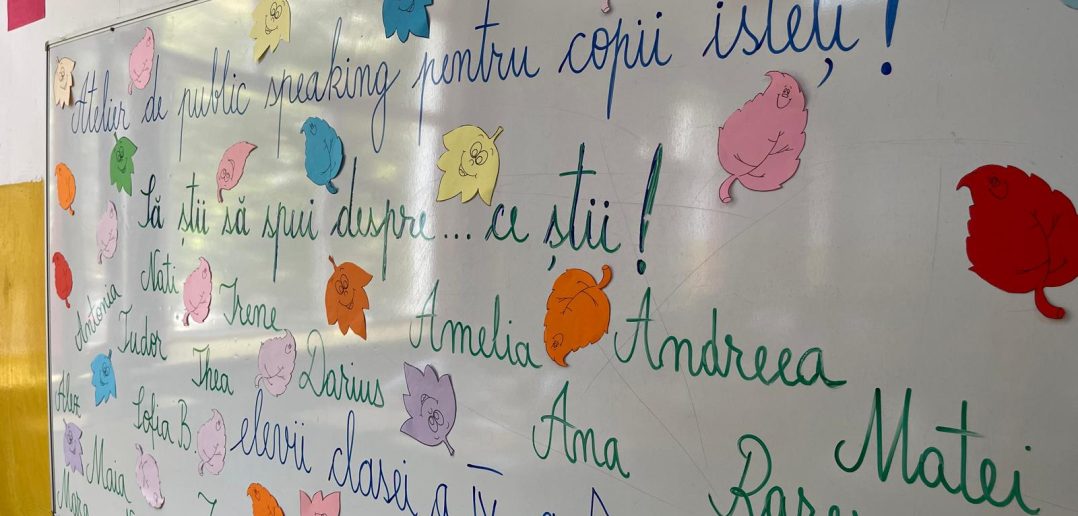 Atelier de public speaking pentru copii isteți!
Să știi să spui despre... ce știi!
Nati Irene Amelia Andreea
Antonia Tudor Thea Darius Ana Matei
Alex Sofia B. elevii clasei a IV-a
Maia